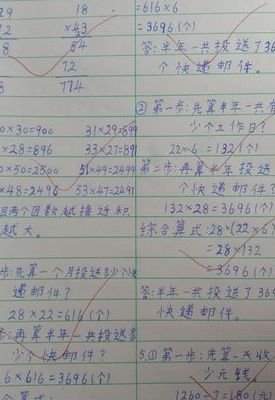 29
18
12
×43
8
54
72
8
774
0×30=900
31×29=899
×28=896
33×27=891
0×50=2500
51×49=2499
×48=2496
53×47=2491
且两个因数越接近积
越大。
步:先算一个月投送多少个快
递邮件?
28×22=616(个)
步:再算半年一共投送多
少个快邮件?
6×616=3696(个)
=616×6
=3696(个)
答:半年一共投送了36
个快递邮件。
②第一步:先算半年一共有
少个工作日?
22×6=132(个)
第二步:再算半年投送
个快递邮件?
132×28=3696(个)
综合算式:28×(22×6)
=28×132
=3696(个)
答:半年一共投送了369
快递邮件。
5.①第一步:先算一天收
少元钱。
1260÷7=180(元)